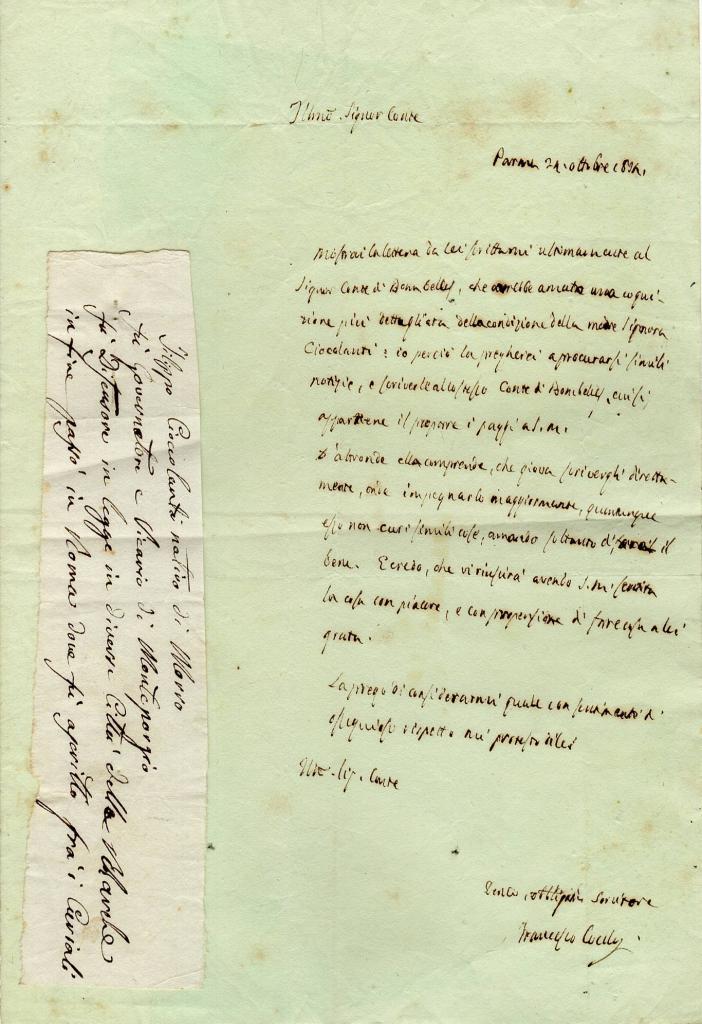 Illmo Signor Conte
Parma 24. ottobre 1834.
Mostrai la lettera da Lei scrittami ultimamente al
Signor Conte di Bombelles, che avrebbe amata una cogni-
zione più dettagliata della condizione della madre Signora
Ciccolanti: io perciò la pregherei a procurarsi simili
notizie, e scriverle allo stesso Conte di Bombelles, cui si
appartiene il proporre i paggi a S. M.
D'altronde ella comprende, che giova scriverghi diretta-
mente, onde impegnarlo maggiormente, quantunque
esso non curi simili cose, amando soltanto di far il
bene. E credo, che vi riuscirà avendo S. M. sentita
la cosa con piacere, e con propensione di fare cosa a lei
grata.
La prego di considerarmi quale con sentimento di
ossequioso rispetto mi protesto di lei
Sig. Conte
servitore
Francesco
Filippo Ciccolanti nativo di Morro
fu Governatore e Vicario di Monteporzio
fu Difensore in legge in diverse Città della Marche
in fine passò in Roma dove fu ascritto fra i Curiali